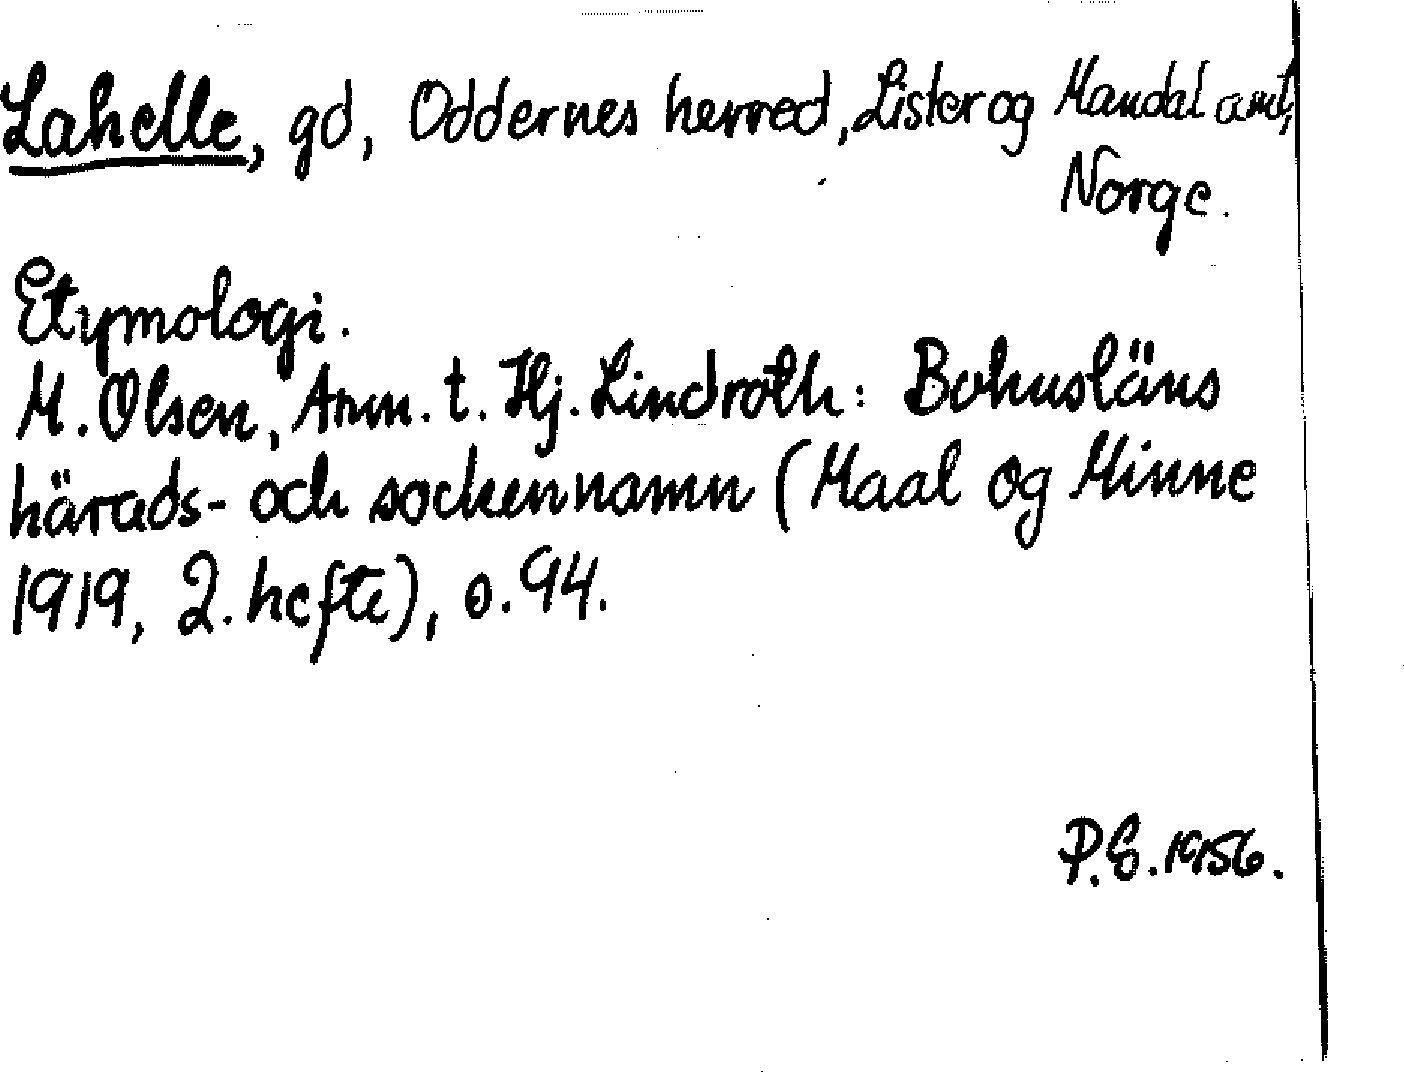 Lahelle, gd, Oddernes herred, Lister og Mandal amt,
Norge.
Etymologi.
M. Olsen, Anm. t. Hj. Lindroth: Bohusläns
härads- och sockennamn (Maal og Minne
1919, 2. hefte), s. 94.
P.S. 1956.